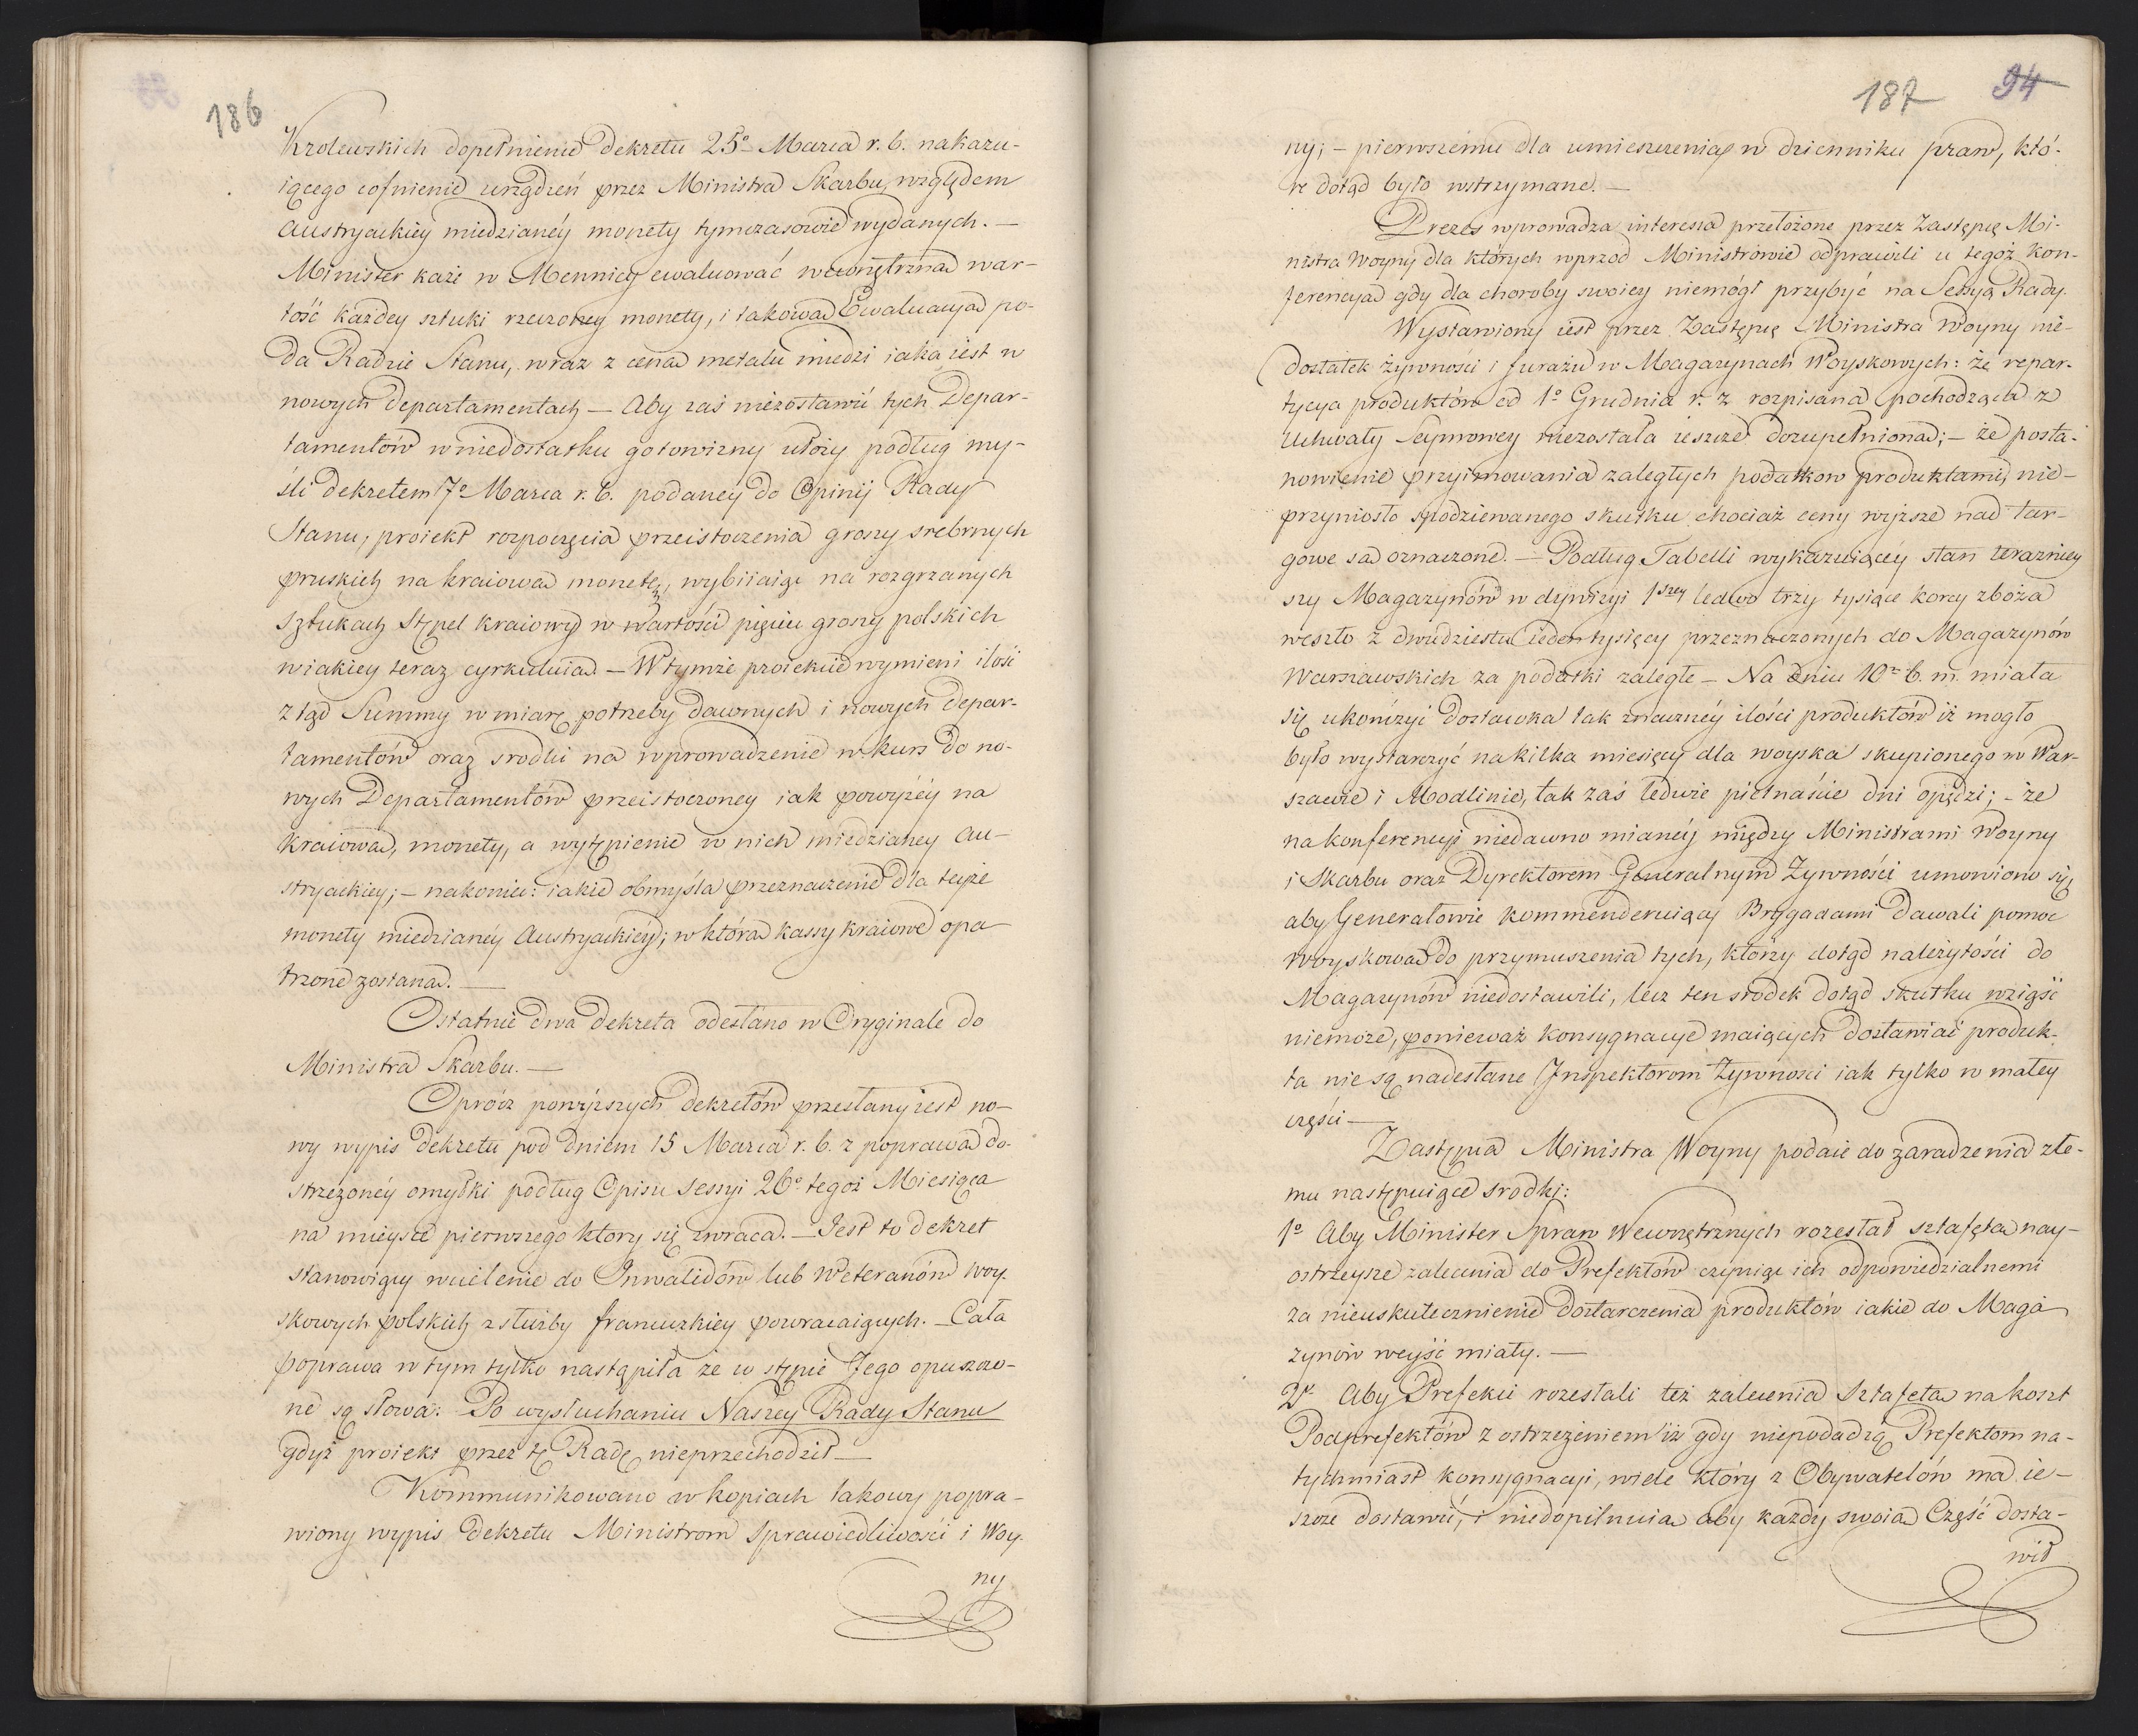 186
Krolewskich dopełnienie Dekretu 25o Marca r. b. nakazu-
iącego cofnienie urządzeń przez Ministra Skarbu, względem
Austryackiey miedzianéy monety tymczasowie wydanych. —
Minister każe w Mennicy ewaluować wewnętrzna war-
tość każdey sztuki rzeczoney monety, i takowa Ewaluacya po-
da Radzie Stanu, wraz z cena metalu miedzi iaka iest w
nowych Departamentach — Aby zaś niezostawić tych Depar-
tamentów w niedostatku gotowizny ułoży podług my-
śli dekretem 7o Marca r. b. podaney do Opinij Rady
Stanu, proiekt rozpoczęcia przeistoczenia groszy srebrnych
pruskich na kraiowa monetę, wybiiaiąc na rozgrzanych
sztukach stępel kraiowy w wartości pięciu groszy polskich
w iakiey teraz cyrkuluia — W tymże proiekcie wymieni ilość
z tąd Summy w miarę potrzeby dawnych i nowych Depar-
tamentów oraz srodki na wprowadzenie w kurs do no-
wych Departamentów przeistoczoney iak powyżéy na
kraiowa, monety, a wytępienie w nich miedzianey Au-
stryackiey; — nakoniec: iakie obmyśla przeznaczenie dla teyże
monety miedzianéy Austryackiéy; w która kassy kraiowe opa
trzone zostana. —
Ostatnie dwa dekreta odesłano w Oryginale do
Ministra Skarbu. —
Oprócz powyższych dekretów przesłany iest no-
wy wypis Dekretu pod dniem 15 Marca r. b. z poprawa do-
strzeżonéy omyłki podług Opisu Sessyi 26o tegoż Miesiąca
na mieysce pierwszego ktory się zwraca. — Jest to dekret
stanowiący wcielenie do Inwalidów lub Weteranów woy-
skowych polskich z służby francuzkiey powracaiących. — Cała
poprawa w tym tylko nastąpiła że w stępie Jego opuszczo-
ne są słowa: Po wysłuchaniu Naszey Rady Stanu
gdyż proiekt przez tę Radę nieprzechodził —
Kommunikowano w kopiach takowy popra-
wiony wypis Dekretu Ministrom Sprawiedliwości i Woy-
ny
187 94
ny; — pierwszému dla umieszczenia w dzienniku praw, któ-
re dotąd było wstrzymane. —
Prezes wprowadza interessa przełożone przez Zastępcę Mi-
nistra Woyny dla których wprzod Ministrowie odprawili u tegoż kon-
ferencya gdy dla choroby swoiey niemógł przybyć na Sessyą Rady.
Wystawiony iest przez Zastępcę Ministra Woyny nie-
dostatek żywności i furażu w Magazynach Woyskowych: że repar-
tycya produktów od 1o Grudnia r. z. rozpisana pochodząca z
Uchwały Seymowey niezostała ieszcze dozupełniona; — że posta-
nowienie przyimowania zaległych podatkow produktami, nie-
przyniosło spodziewanego skutku chociaż ceny wyższe nad tar-
gowe sa oznaczone. — Podług Tabelli wykazuiącéy stan teraźniey
szy Magazynów w dywizyi 1szey ledwo trzy tysiące korcy zboża
weszło z dwudziestu ieden tysięcy przeznaczonych do Magazynów
Warszawskich za podatki zaległe — Na dniu 10m b. m. miała
się ukończyć dostawka tak znaczney ilości produktów iż mogło
było wystarczyć na kilka miesięcy dla woyska skupionego w War-
szawie i Modlinie, tak zaś ledwie piętnaście dni opędzi; — że
na konferencyi niedawno mianéy między Ministrami Woyny
i Skarbu oraz Dyrektorem Generalnym Żywności umowiono się
aby Generałowie kommenderuiący Brygadami dawali pomoc
woyskowa do przymuszenia tych, którzy dotąd należytości do
Magazynów niedostawili, lecz ten srodek dotąd skutku wziąść
niemoże, ponieważ konsygnacye maiących dostawiać produk-
ta nie są nadesłane Inspektorom Żywności iak tylko w małey
części —
Zastępca Ministra Woyny podaie do zaradzenia złe-
mu następuiące srodki:
1o Aby Minister Spraw Wewnętrznych rozesłał sztafeta nay-
ostrzeysze zalecenia do Prefektów czyniąc ich odpowiedzialnemi
za nieuskutecznienie dostarczenia produktów iakie do Maga
zynów weyść miały. —
2o Aby Prefekci rozesłali też zalecenia Sztafeta na koszt
Podprefektów z ostrzeżeniem iż gdy niepodadzą Prefektom na-
tychmiast konsygnacyi, wiele który z Obywatelów ma ie-
szcze dostawić, i niedopilnuia aby każdy swoia Część dosta-
wił